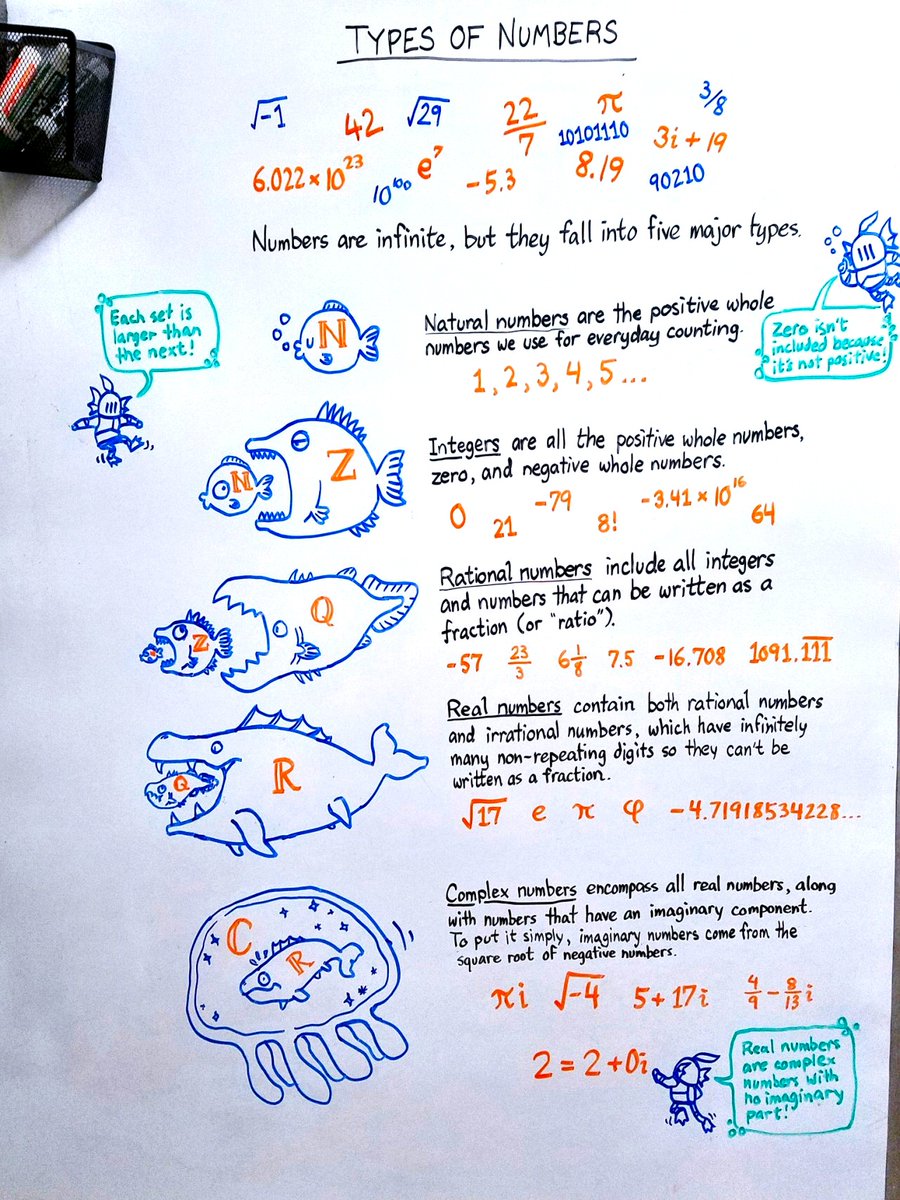 TYPES OF NUMBERS
√-1 42 √29 22/7 π 3/8
6.022×10²³ 10¹⁰⁰ e⁷ -5.3 10101110 8.19 3i + 19 90210
Numbers are infinite, but they fall into five major types.
Each set is
larger than
the next!
N
Natural numbers are the positive whole
numbers we use for everyday counting.
1, 2, 3, 4, 5...
Zero isn't
included because
it's not positive!
N Z
Integers are all the positive whole numbers,
zero, and negative whole numbers.
0 21 -79 8! -3.41 × 10¹⁶ 64
Z Q
Rational numbers include all integers
and numbers that can be written as a
fraction (or "ratio").
-57 23/3 6 1/8 7.5 -16.708 1091.1̅1̅1̅
Q R
Real numbers contain both rational numbers
and irrational numbers, which have infinitely
many non-repeating digits so they can't be
written as a fraction.
√17 e π φ -4.71918534228...
C R
Complex numbers encompass all real numbers, along
with numbers that have an imaginary component.
To put it simply, imaginary numbers come from the
square root of negative numbers.
πi √-4 5 + 17i 4/9 - 8/13 i
2 = 2 + 0i
Real numbers
are complex
numbers with
no imaginary
part!